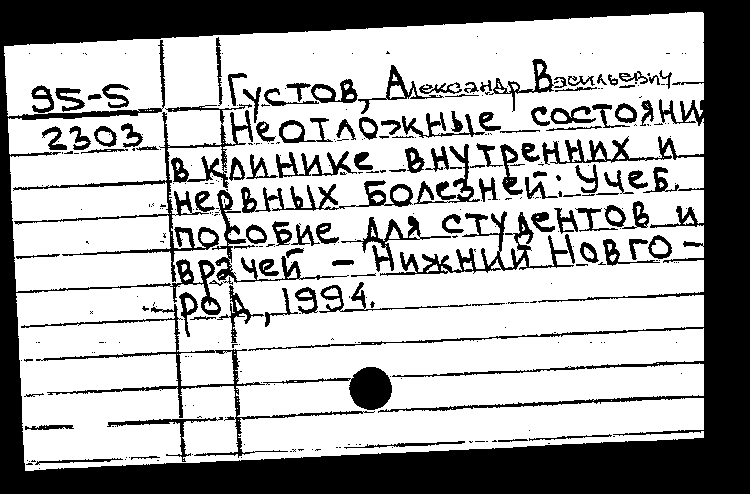 95-5
2303
Густов, Александр Васильевич
Неотложные состояния
в клинике внутренних и
нервных болезней: Учеб.
пособие для студентов и
врачей. – Нижний Новго-
род, 1994.